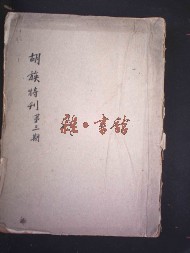 胡族特刊第三期
雜·書館